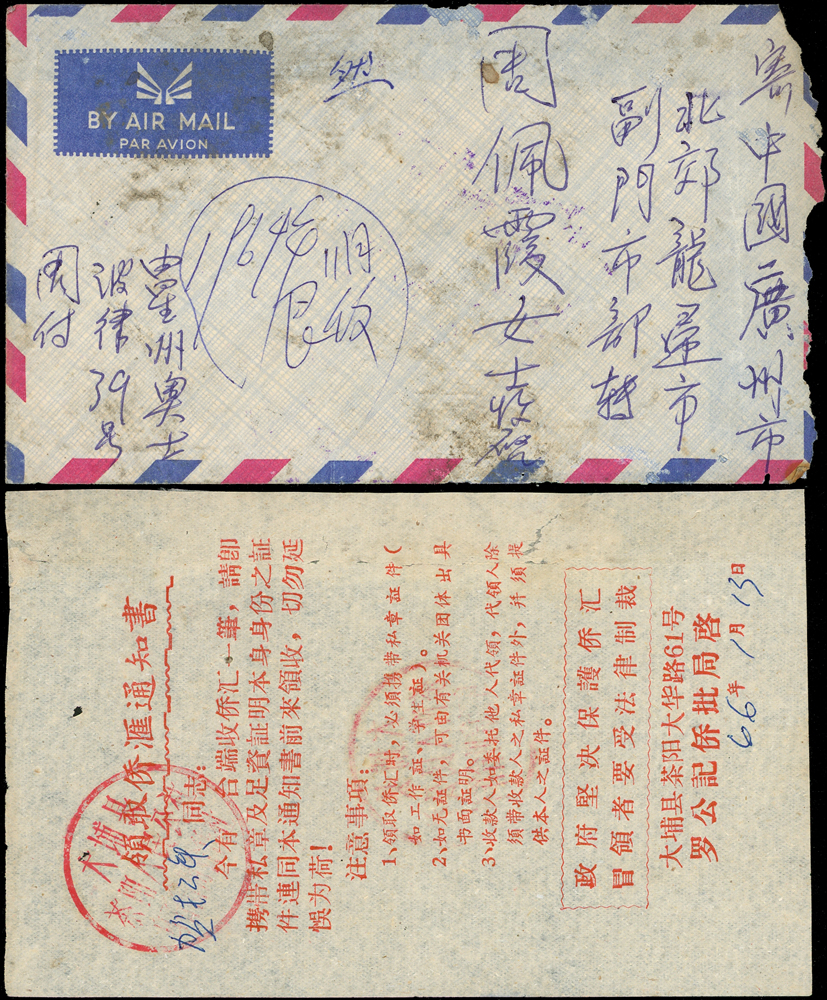 BY AIR MAIL
PAR AVION
寄中國廣州市
北郊龍歸市
副門市部轉
周佩霞女士收啓
由星洲奧士
波律39号
周付
領取侨滙通知書
同志:
今有 台端收侨汇一筆,請卽
携带私章及足資証明本身身份之証
件連同本通知書前來領收,切勿延
悞为荷!
注意事項:
1、領取侨汇时,必須携带私章証件(
如工作証、学生証)。
2、如无証件,可由有关机关团体出具
书面証明。
3、收款人如委托他人代領,代領人除
須带收款人之私章証件外,幷須提
供本人之証件。
政府堅决保護侨汇
冒領者要受法律制裁
大埔县茶阳大华路61号
罗公記侨批局啓
66年1月13日